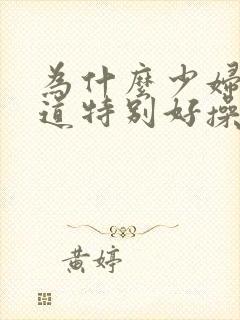 為什麼少婦
道特別好操
黃婷